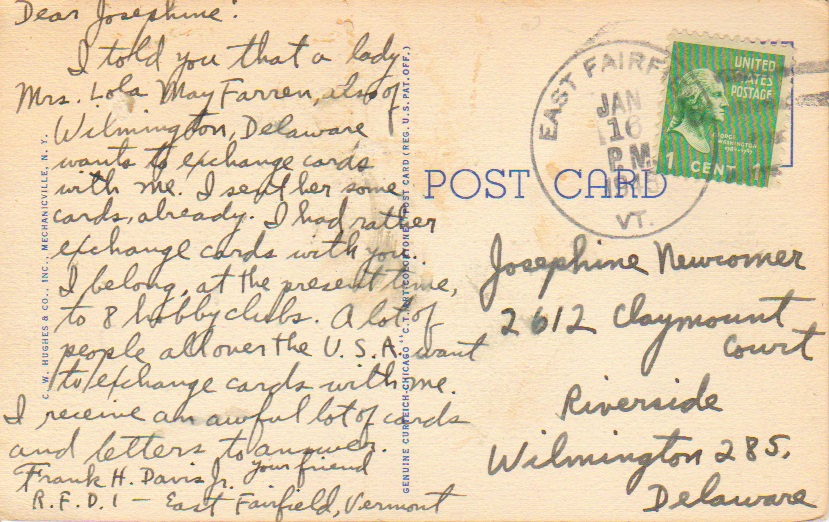 Dear Josephine:
I told you that a lady
Mrs. Lola May Farren, also of
Wilmington, Delaware
wants to exchange cards
with me. I sent her some
cards, already. I had rather
exchange cards with you.
I belong, at the present time,
to 8 hobby clubs. A lot of
people all over the U.S.A. want
to exchange cards with me.
I receive an awful lot of cards
and letters to answer.
your friend
Frank H. Davis Jr.
R.F.D. 1 — East Fairfield, Vermont
C. W. HUGHES & CO., INC., MECHANICVILLE, N. Y.
GENUINE CURTEICH-CHICAGO "C. T. ART-COLORTONE" POST CARD (REG. U.S. PAT. OFF.)
POST CARD
EAST FAIRF
JAN
16
P.M.
VT.
UNITED
STATES
POSTAGE
WASHINGTON
1 CENT 1
Josephine Newcomer
2612 Claymount
Court
Riverside
Wilmington 285,
Delaware